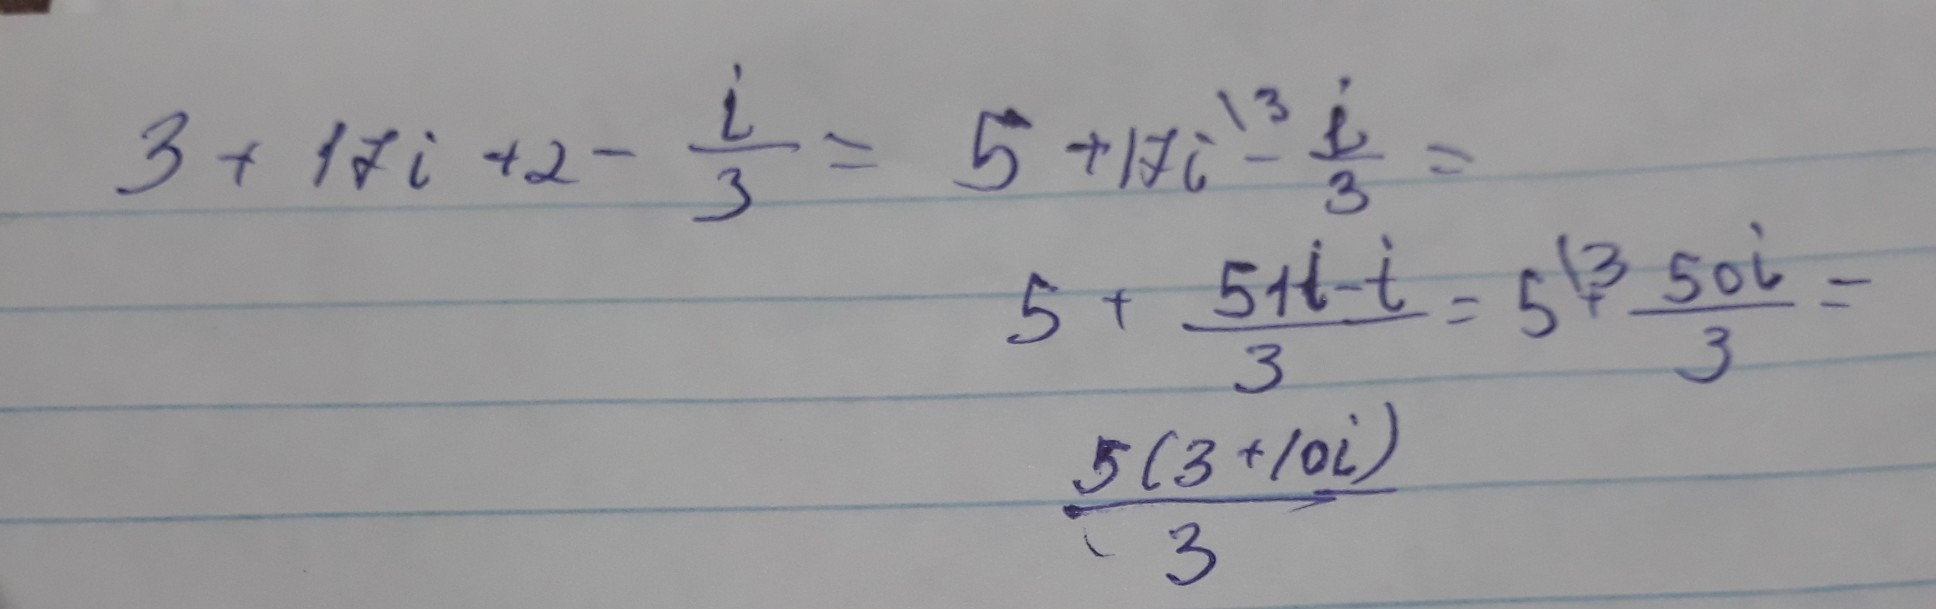 3 + 17i + 2 - i/3 = 5 + 17i\3 - i/3 =
5 + 51i-i/3 = 5\3 + 50i/3 =
5(3+10i)/3